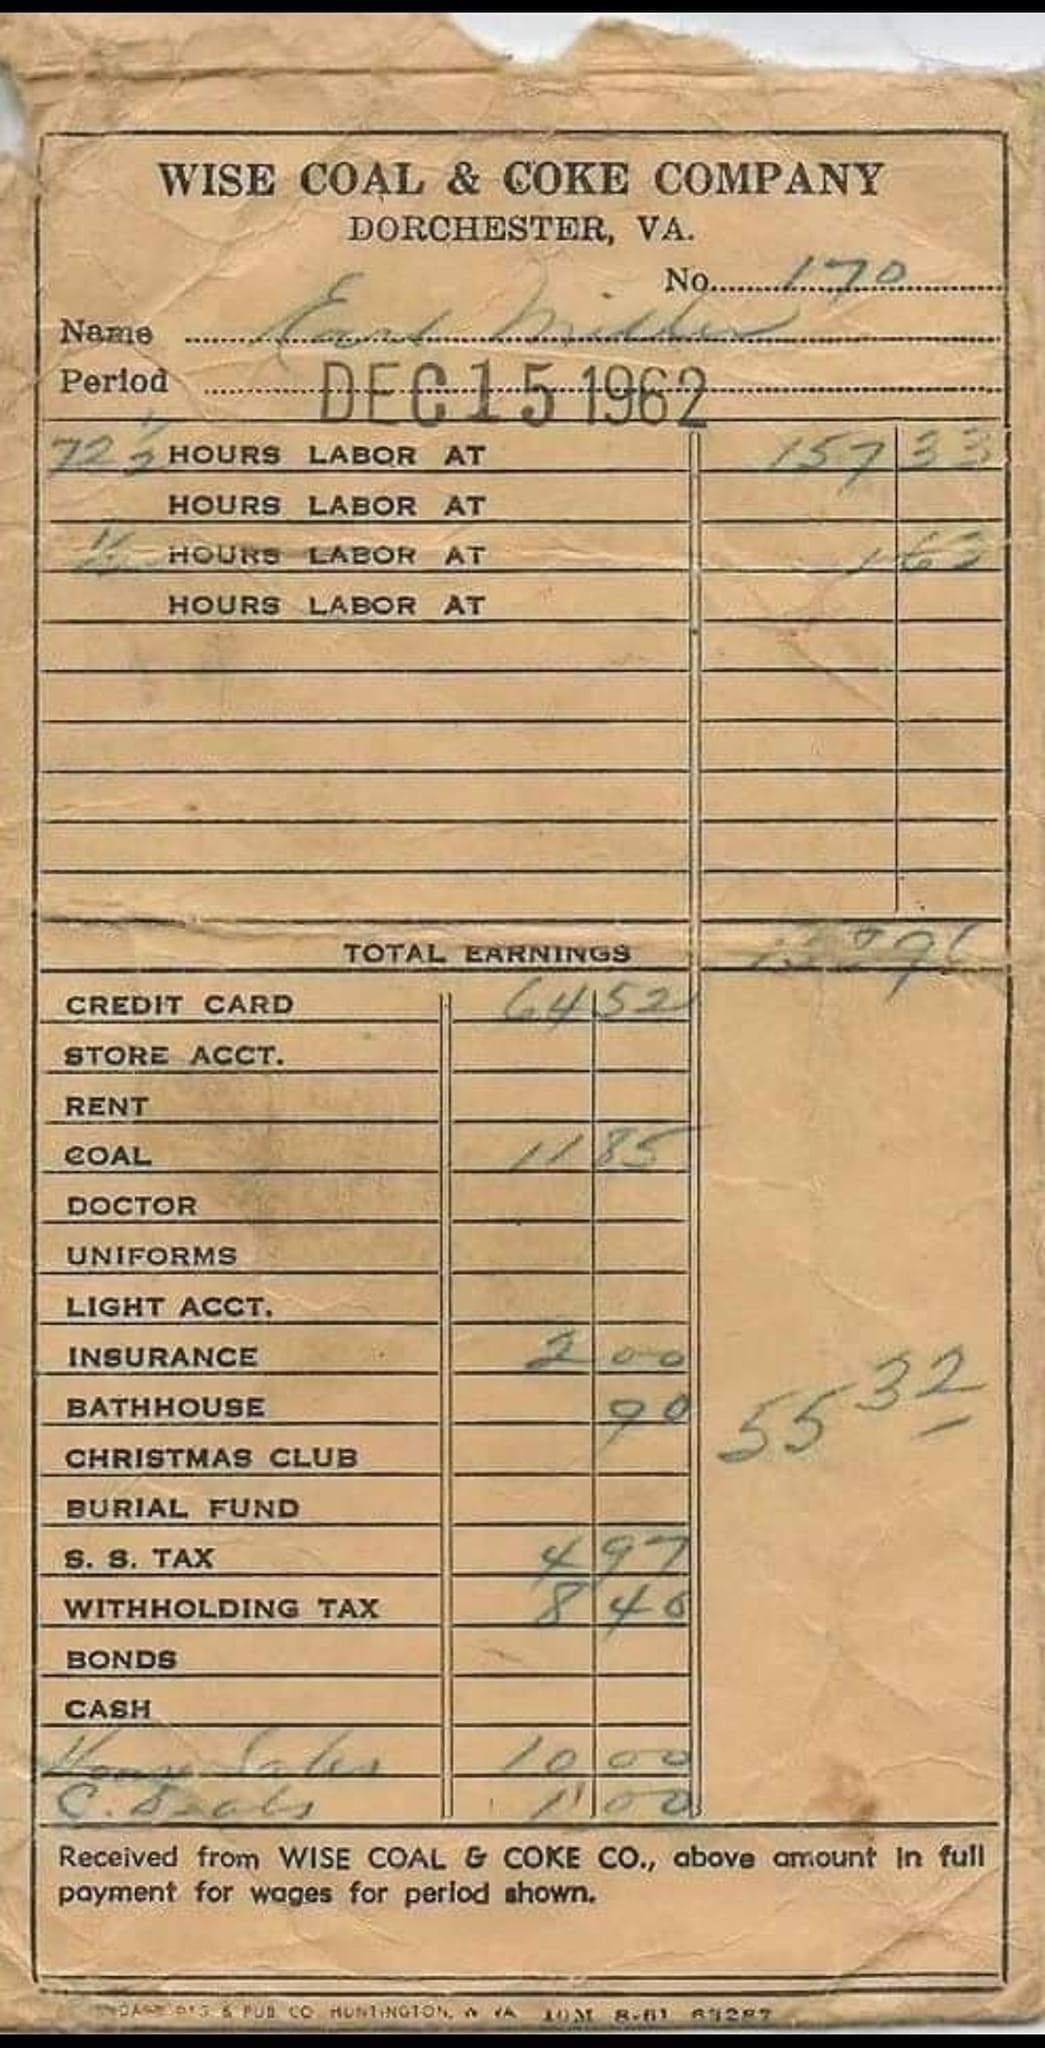 WISE COAL & COKE COMPANY
DORCHESTER, VA.
No. 170
Name Earl Miller
Period DEC 15 1962
72 1/2 HOURS LABOR AT 157 33
HOURS LABOR AT
1/2 HOURS LABOR AT 1 63
HOURS LABOR AT
TOTAL EARNINGS
CREDIT CARD 64 52
STORE ACCT.
RENT
COAL 11 85
DOCTOR
UNIFORMS
LIGHT ACCT.
INSURANCE 2 00
BATHHOUSE 90
55 32
CHRISTMAS CLUB
BURIAL FUND
S. S. TAX 4 97
WITHHOLDING TAX 8 40
BONDS
CASH
House Sales 10 00
C. Seals 1 00
Received from WISE COAL & COKE CO., above amount in full
payment for wages for period shown.
& PUB CO HUNTINGTON, W VA 10M 8-61 69287